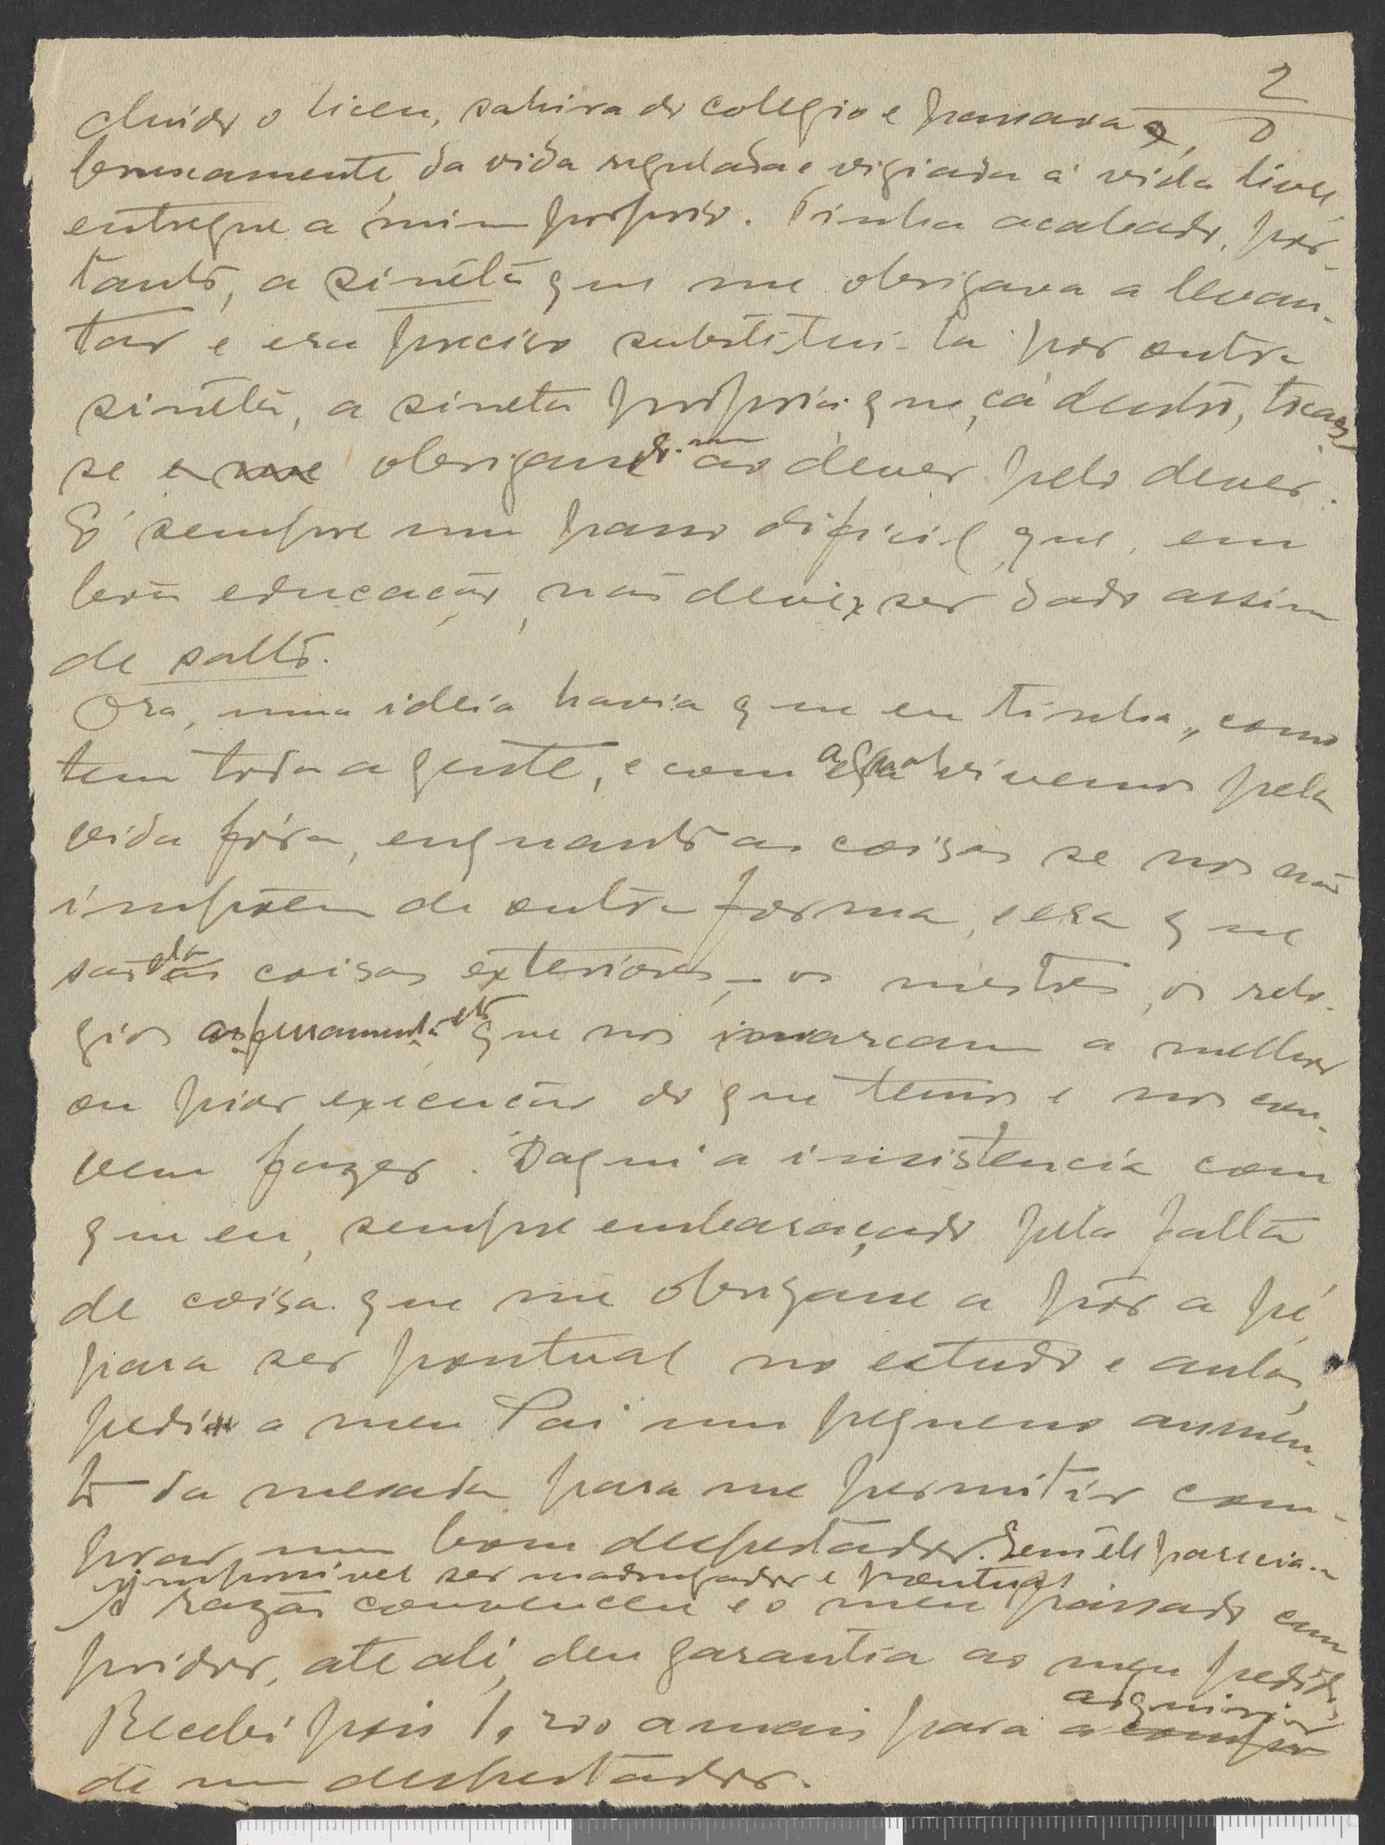 2
cluido o liceu, sahira do colegio e passara,
bruscamente, da vida regulada e vigiada á vida livre,
entregue a mim proprio. Tinha acabado, por-
tanto, a sinêta que me obrigava a levan-
tar e era preciso substitui-la por outra
sinêta, a sineta propria, que, cá dentro, tocas-
se e me obrigando-me ao dever pelo dever.
É sempre um passo dificil que, em
boa educação, não deve ser dado assim
de salto.
Ora, uma ideia havia que eu tinha, como
tem toda a gente, e com a qual vivemos pela
vida fóra, enquanto as coisas se nos não
impõem de outra forma, e era que
são as coisas exteriores – os mestres, os relo-
gios as ferramentas etc que nos marcam a melhor
ou pior execução do que temos e nos con-
vem fazer. Daqui a insistencia com
que eu, sempre embaraçado pela falta
de coisa que me obrigasse a pôr a pé,
para ser pontual no estudo e aulas,
pedi a meu Pai um pequeno aumen-
to da mesada para me permitir com-
prar um bom despertador. Sem êle parecia-
impossivel ser madrugador e pontual
A razão convenceu e o meu passado cum
pridor, até ali, deu garantia ao meu pedido.
Recebi pois 1,200 a mais para adquirir
a compra
de um despertador.